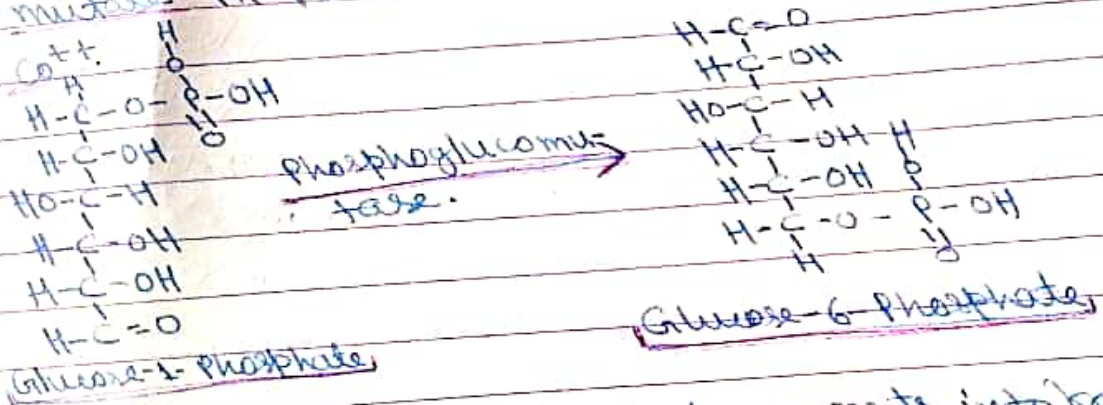 Co++.
H
H-C-O-P-OH
O
H
O
H-C-OH
HO-C-H
H-C-OH
H-C-OH
H-C=O
Glucose-1-Phosphate
Phosphoglucomu-
tase.
H-C=O
H-C-OH
HO-C-H
H-C-OH
H-C-OH
H-C-O-P-OH
H
H
O
O
Glucose-6-Phosphate